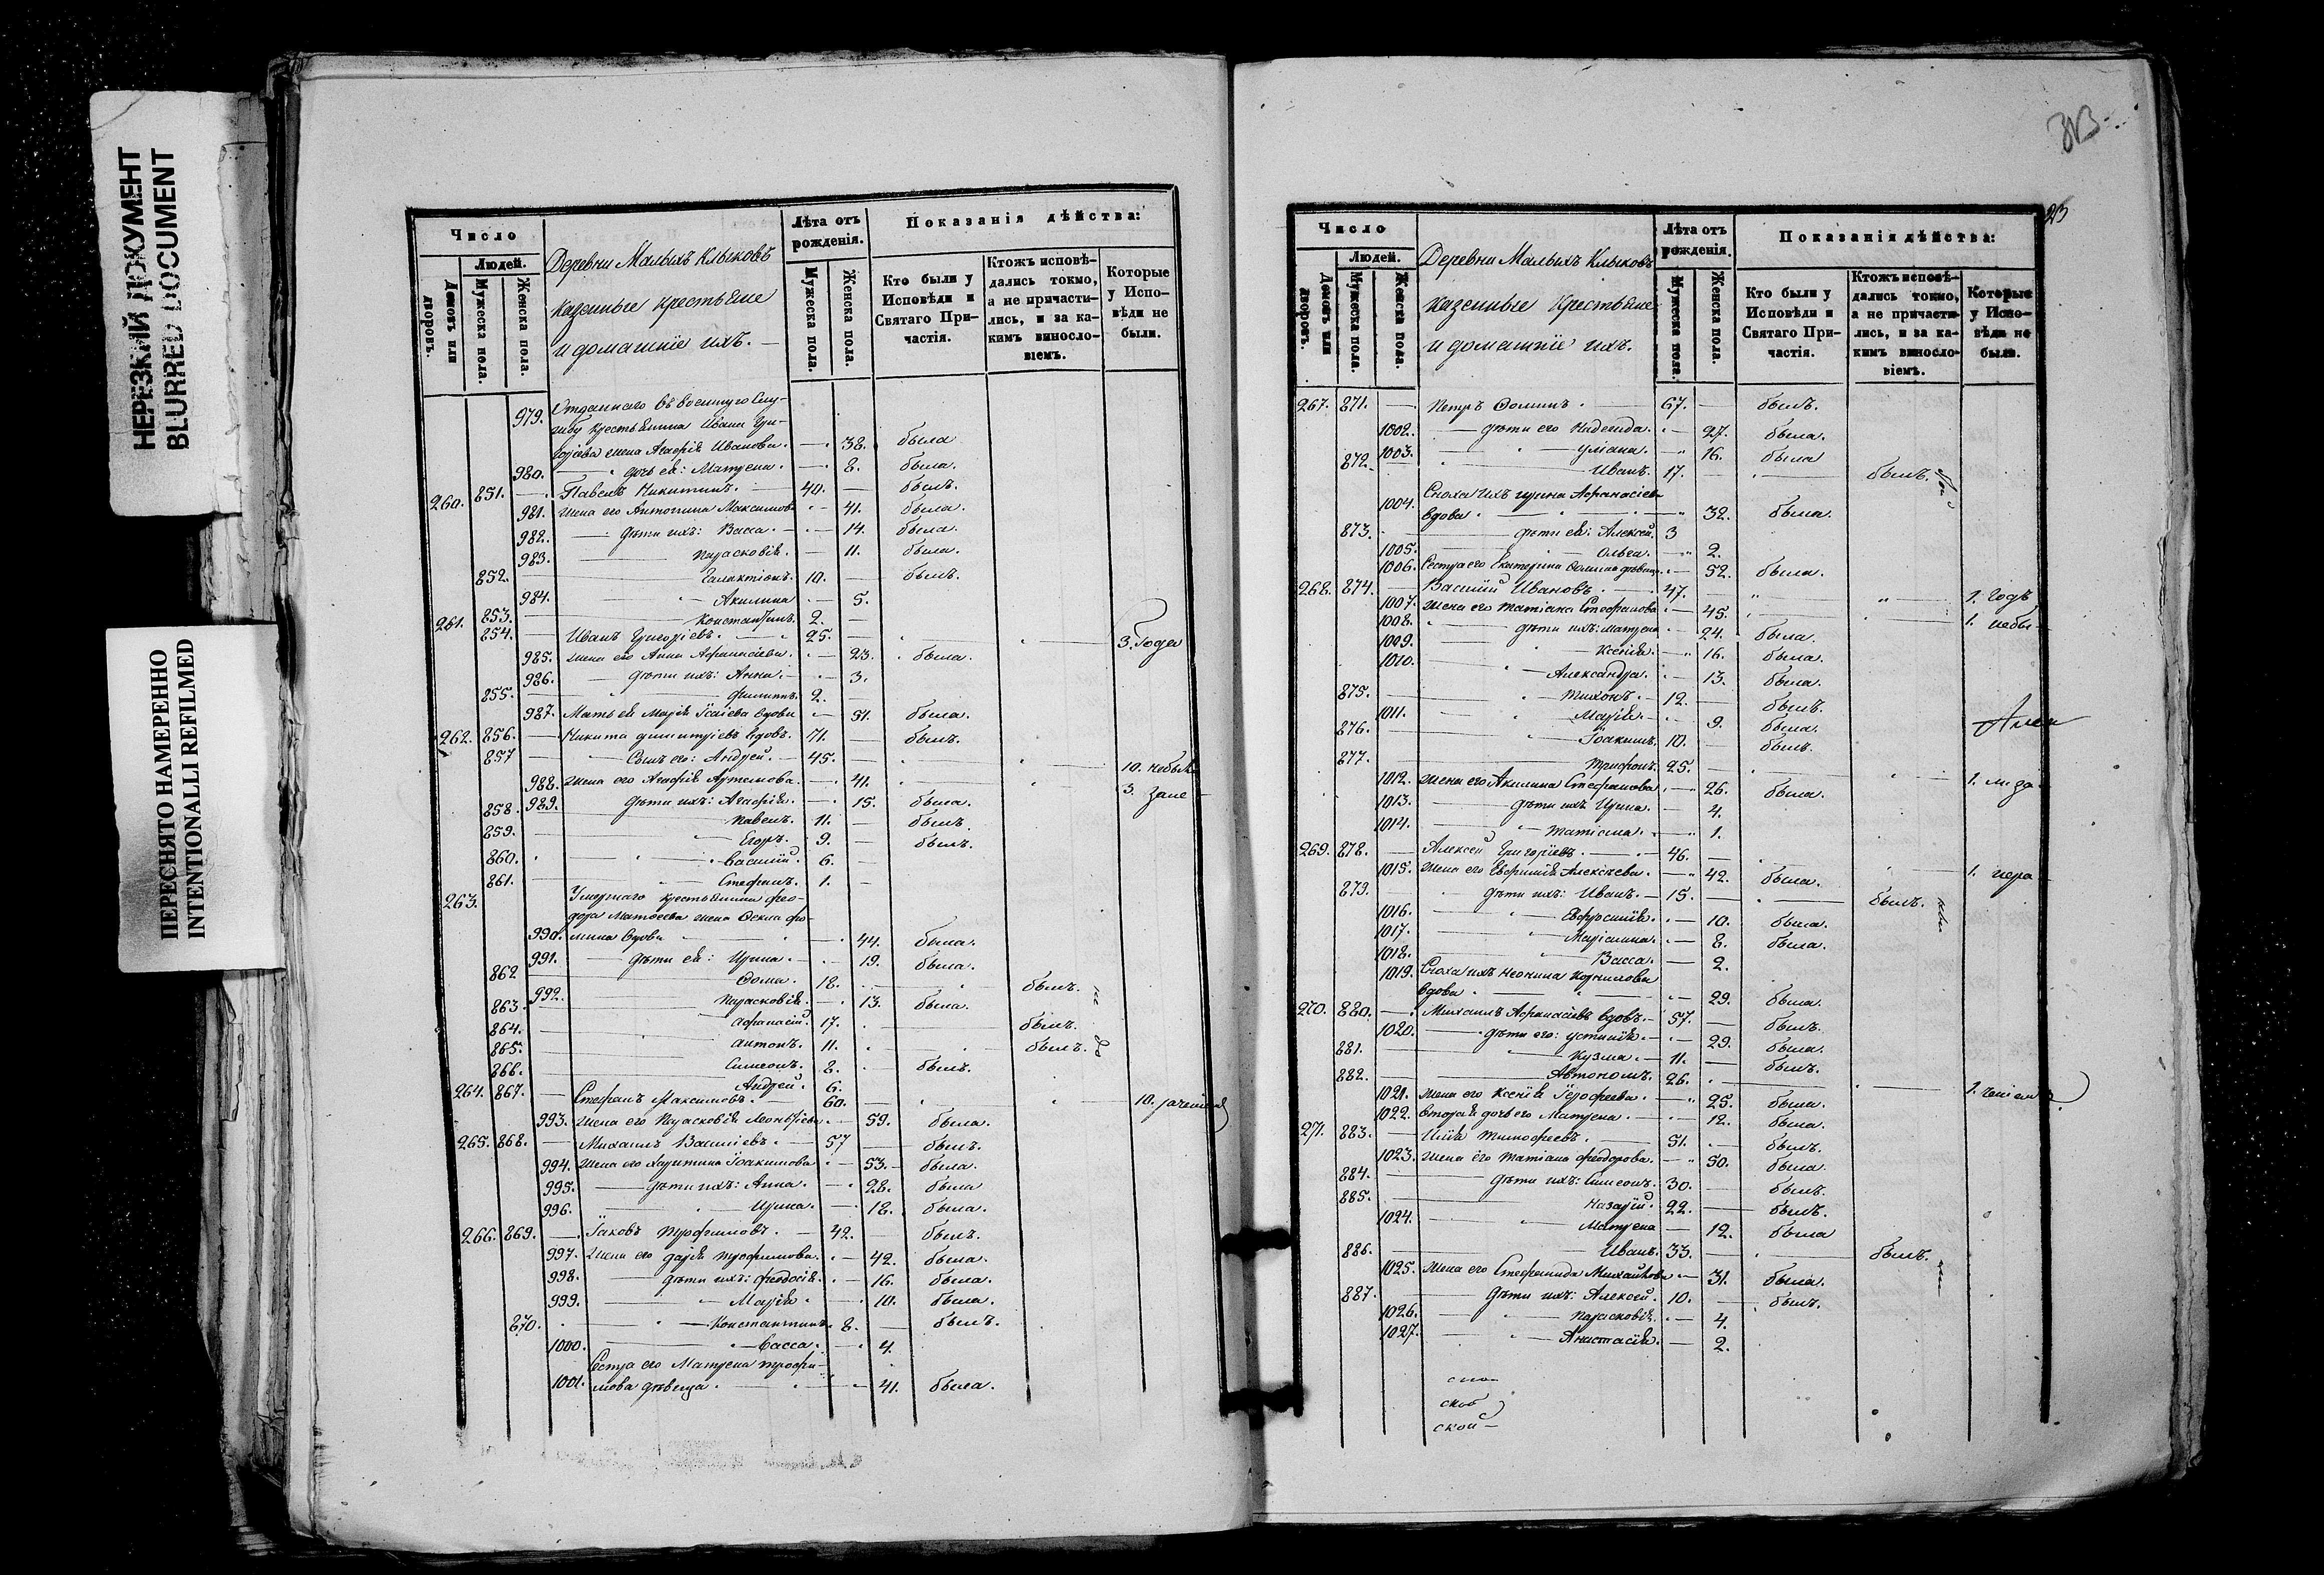 НЕРЕЗКИЙ ДОКУМЕНТ
BLURRED DOCUMENT
ПЕРЕСНЯТО НАМЕРЕННО
INTENTIONALLI REFILMED
Число
Людей.
Домовъ или дворовъ.
Мужеска пола.
Женска пола.
Деревни Малыхъ Клыковъ
казенные крестьяне
и домашніе ихъ. —
Лѣта отъ рожденія.
Мужеска пола.
Женска пола.
Показанія дѣйства:
Кто были у Исповѣди и Святаго Причастія.
Ктожъ исповѣдались токмо, а не причастились, и за какимъ винословіемъ.
Которые у Исповѣди не были.
979. Отданнаго въ военную слу-
жбу крестьянина Ивана Гри-
горіева жена Агафія Иванова. 38. была
980. дочь ея: Матрена. 8. была.
260. 851. Павелъ Никитинъ. 40. былъ.
981. жена его Антонина Максимова 41. была.
982. дѣти ихъ: Васса. 14. была.
983. Парасковія. 11. была.
852. Галактіонъ. 10. былъ.
984. Акилина 5.
853. Константинъ. 2.
261. 854. Иванъ Григоріевъ. 25. 3. года
985. жена его Анна Афанасіева. 23. была.
986. дѣти ихъ: Анна. 3.
855. Филиппъ. 2.
987. Мать ея Марія Ісаіева вдова 51. была.
262. 856. Никита Димитріевъ вдовъ. 71. былъ.
857 Сынъ его: Андрей. 45. 10. небы
988. жена его Агафія Артемова. 41. 3.
989. дѣти ихъ: Агафія. 15. была.
858. Павелъ. 11. былъ.
859. Егоръ. 9. былъ.
860. Василій. 6.
861. Стефанъ. 1.
263. Умершаго крестьянина Фео-
дора Матѳеева жена Ѳекла Ѳо-
990. мина вдова 44. была.
991. дѣти ея: Ирина. 19. была.
862 Ѳома. 18. былъ.
992. Парасковія. 13. была.
863. Афанасій. 17. былъ.
864. Антонъ. 11. былъ.
865. Симеонъ. 8. былъ.
866. Андрей. 6.
264. 867. Стефанъ Максимовъ. 60. 10.
993. жена его Парасковія Леонтіева 59. была.
265. 868. Михаилъ Василіевъ. 57 былъ.
994. жена его Харитина Іоакимова 53. была.
995. дѣти ихъ: Анна. 28. была
996. Ирина. 18. была.
266. 869. Іаковъ Трофимовъ. 42. былъ.
997. жена его Дарія Трофимова. 42. была.
998. дѣти ихъ: Феодосія. 16. была.
999. Марія 10. была.
870. Константинъ. 8. былъ.
1000. Васса. 4.
Сестра его Матрена Трофи-
1001. мова дѣвица. 41. была.
313
23
Число
Людей.
Домовъ или дворовъ.
Мужеска пола.
Женска пола.
Деревни Малыхъ Клыковъ
казенные крестьяне
и домашніе ихъ.
Лѣта отъ рожденія.
Мужеска пола.
Женска пола.
Показанія дѣйства:
Кто были у Исповѣди и Святаго Причастія.
Ктожъ исповѣдались токмо, а не причастились, и за какимъ винословіемъ.
Которые у Исповѣди не были.
267. 871. Петръ Ѳоминъ. 67. былъ.
1002. дѣти его Надежда. 27. была.
1003. Уліана. 16. была
872. Иванъ. 17. былъ.
Сноха ихъ Ирина Афанасіева
1004. вдова 32. была.
873. дѣти ея: Алексей. 3
1005. Ольга. 2.
1006. Сестра его Екатерина Ѳомина дѣвица 52. была.
268. 874. Василій Ивановъ. 47. 1. годъ
1007. жена его Татіана Стефанова 45. 1. небы
1008. дѣти ихъ: Матрена 24. была.
1009. Ксенія. 16. была.
1010. Александра. 13. была.
875. Тихонъ. 12. былъ.
1011. Марія. 9. была.
876. Іоакимъ. 10. былъ.
877. Трифонъ. 25. 1.
1012. жена его Акилина Стефанова 26. была.
1013. дѣти ихъ Ирина. 4.
1014. Татіана. 1.
269. 878. Алексей Григоріевъ. 46. 1.
1015. жена его Евфимія Алексѣева. 42. была.
879. дѣти ихъ: Иванъ. 15. былъ.
1016. Евфросинія. 10. была.
1017. Маріанна. 8. была.
1018. Васса. 2.
1019. Сноха ихъ Неонила Корнилова
вдова 29. была.
270. 880. Михаилъ Афанасіевъ вдовъ. 57. былъ.
1020. дѣти его: Устинія. 29. была.
881. Кузма. 11. былъ.
882. Автономъ. 26. 1.
1021. жена его Ксенія Іерофеева. 25. была.
1022. вторая дочь его Матрена. 12. была.
271. 883. Илія Тимофеевъ. 51. былъ.
1023. жена его Татіана Феодорова. 50. была.
884. дѣти ихъ: Симеонъ. 30. былъ.
885. Назарій. 22. былъ.
1024. Матрена 12. была
886. Иванъ. 33. былъ.
1025. жена его Стефанида Михайлова 31. была.
887. дѣти ихъ: Алексей. 10. былъ.
1026. Парасковія. 4.
1027. Анастасія. 2.